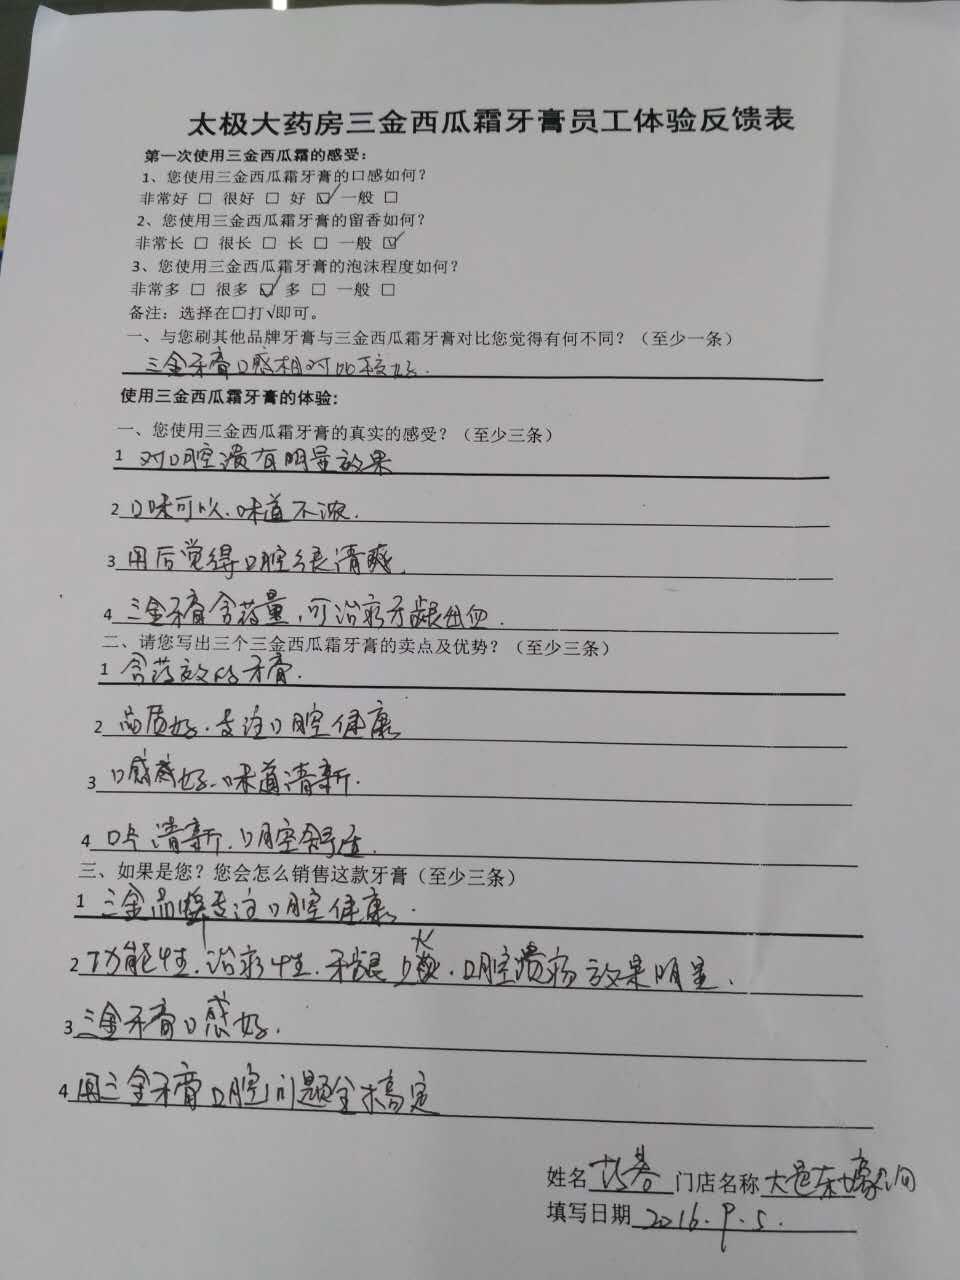 太极大药房三金西瓜霜牙膏员工体验反馈表
第一次使用三金西瓜霜的感受：
1、您使用三金西瓜霜牙膏的口感如何？
非常好 □ 很好 □ 好 ☑ 一般 □
2、您使用三金西瓜霜牙膏的留香如何？
非常长 □ 很长 □ 长 □ 一般 ☑
3、您使用三金西瓜霜牙膏的泡沫程度如何？
非常多 □ 很多 ☑ 多 □ 一般 □
备注：选择在□打√即可。
一、与您刷其他品牌牙膏与三金西瓜霜牙膏对比您觉得有何不同？（至少一条）
三金牙膏口感相对比较好.
使用三金西瓜霜牙膏的体验:
一、您使用三金西瓜霜牙膏的真实的感受？（至少三条）
1 对口腔溃有明显效果
2 口味可以.味道不浓.
3 用后觉得口腔很清爽.
4 三金牙膏含药量,可治疗牙龈出血.
二、请您写出三个三金西瓜霜牙膏的卖点及优势？（至少三条）
1 含药效的牙膏.
2 品质好.专注口腔健康
3 口感好.味道清新.
4 清新.口腔舒适.
三、如果是您？您会怎么销售这款牙膏（至少三条）
1 三金品牌专注口腔健康.
2 功能性.治疗性.牙龈口.口腔溃疡效果明显.
3 三金牙膏口感好.
4 用三金牙膏口腔问题全搞定
姓名 门店名称 大邑东壕沟
填写日期 2016.9.5.